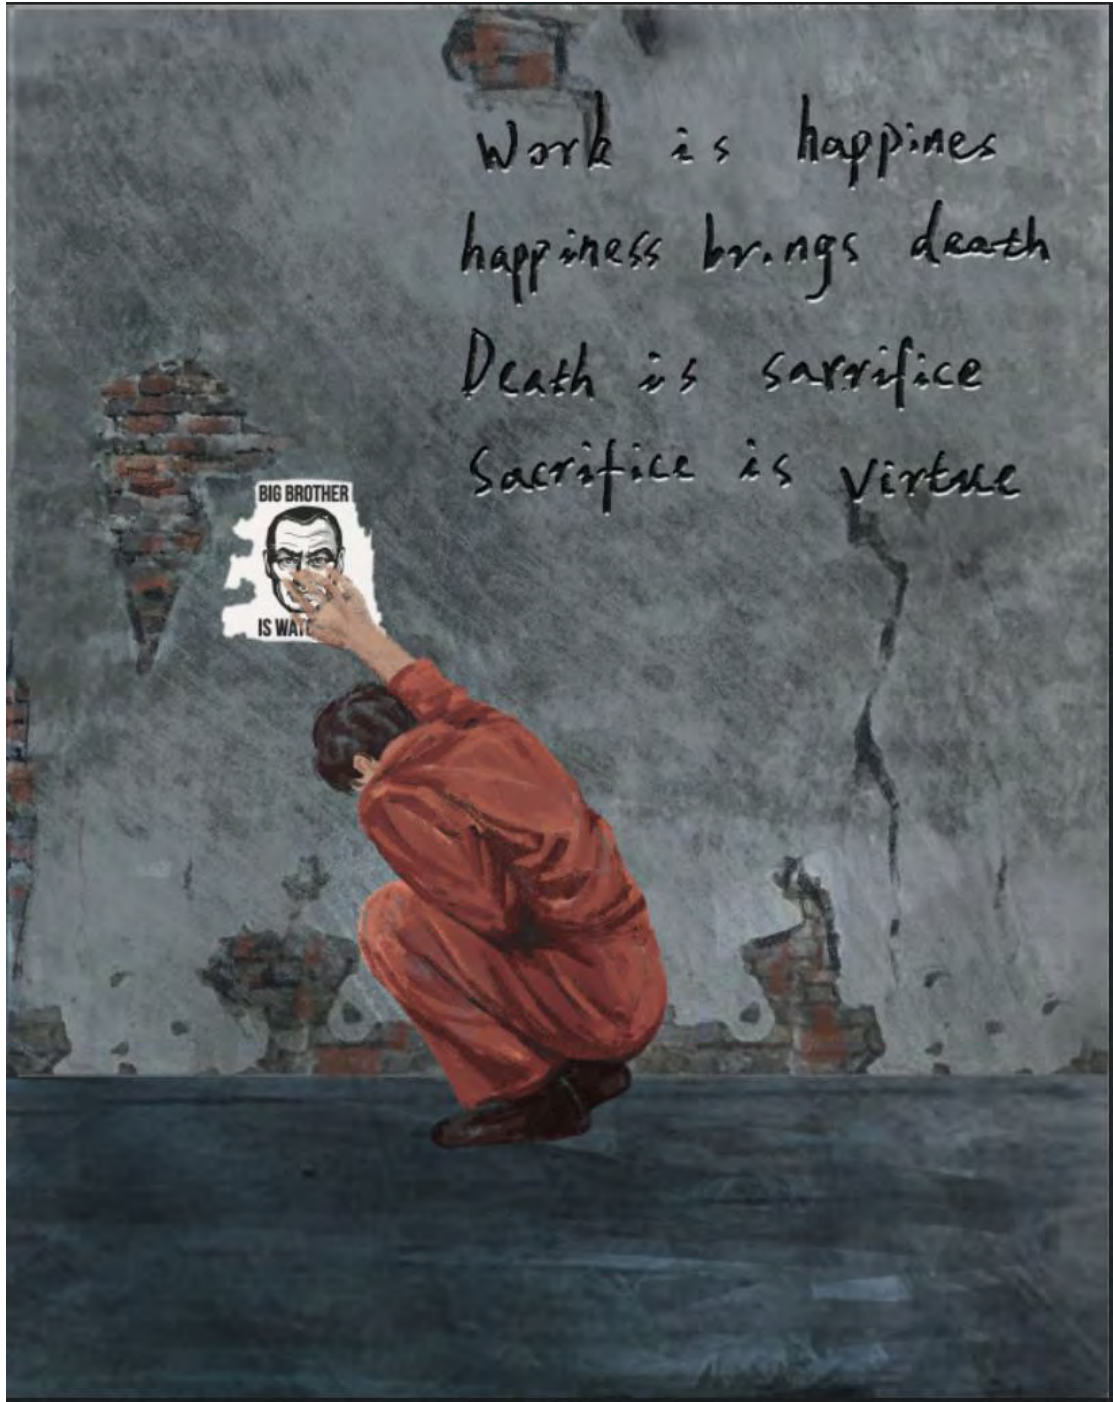 Work is happines
happiness brings death
Death is sarrifice
Sacrifice is virtue
BIG BROTHER
IS